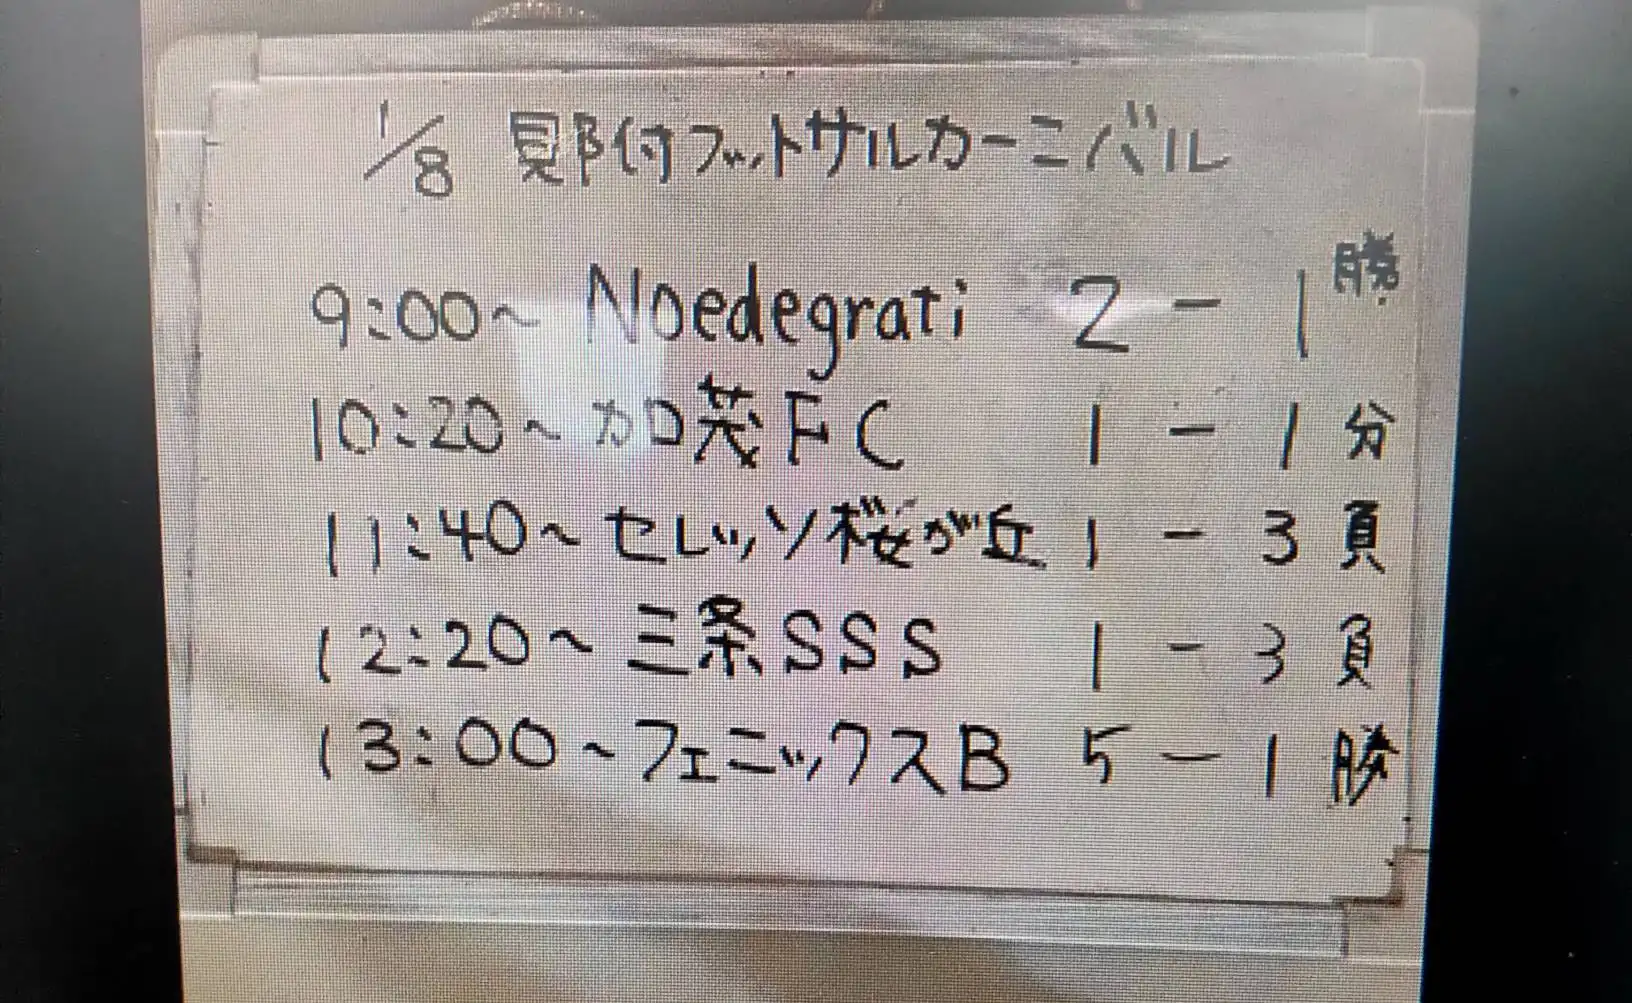 1/8 見附フットサルカーニバル
9:00~ Noedegrati 2 - 1 勝
10:20~ 加茂FC 1 - 1 分
11:40~ セレッソ桜が丘 1 - 3 負
12:20~ 三条SSS 1 - 3 負
13:00~ フェニックスB 5 - 1 勝